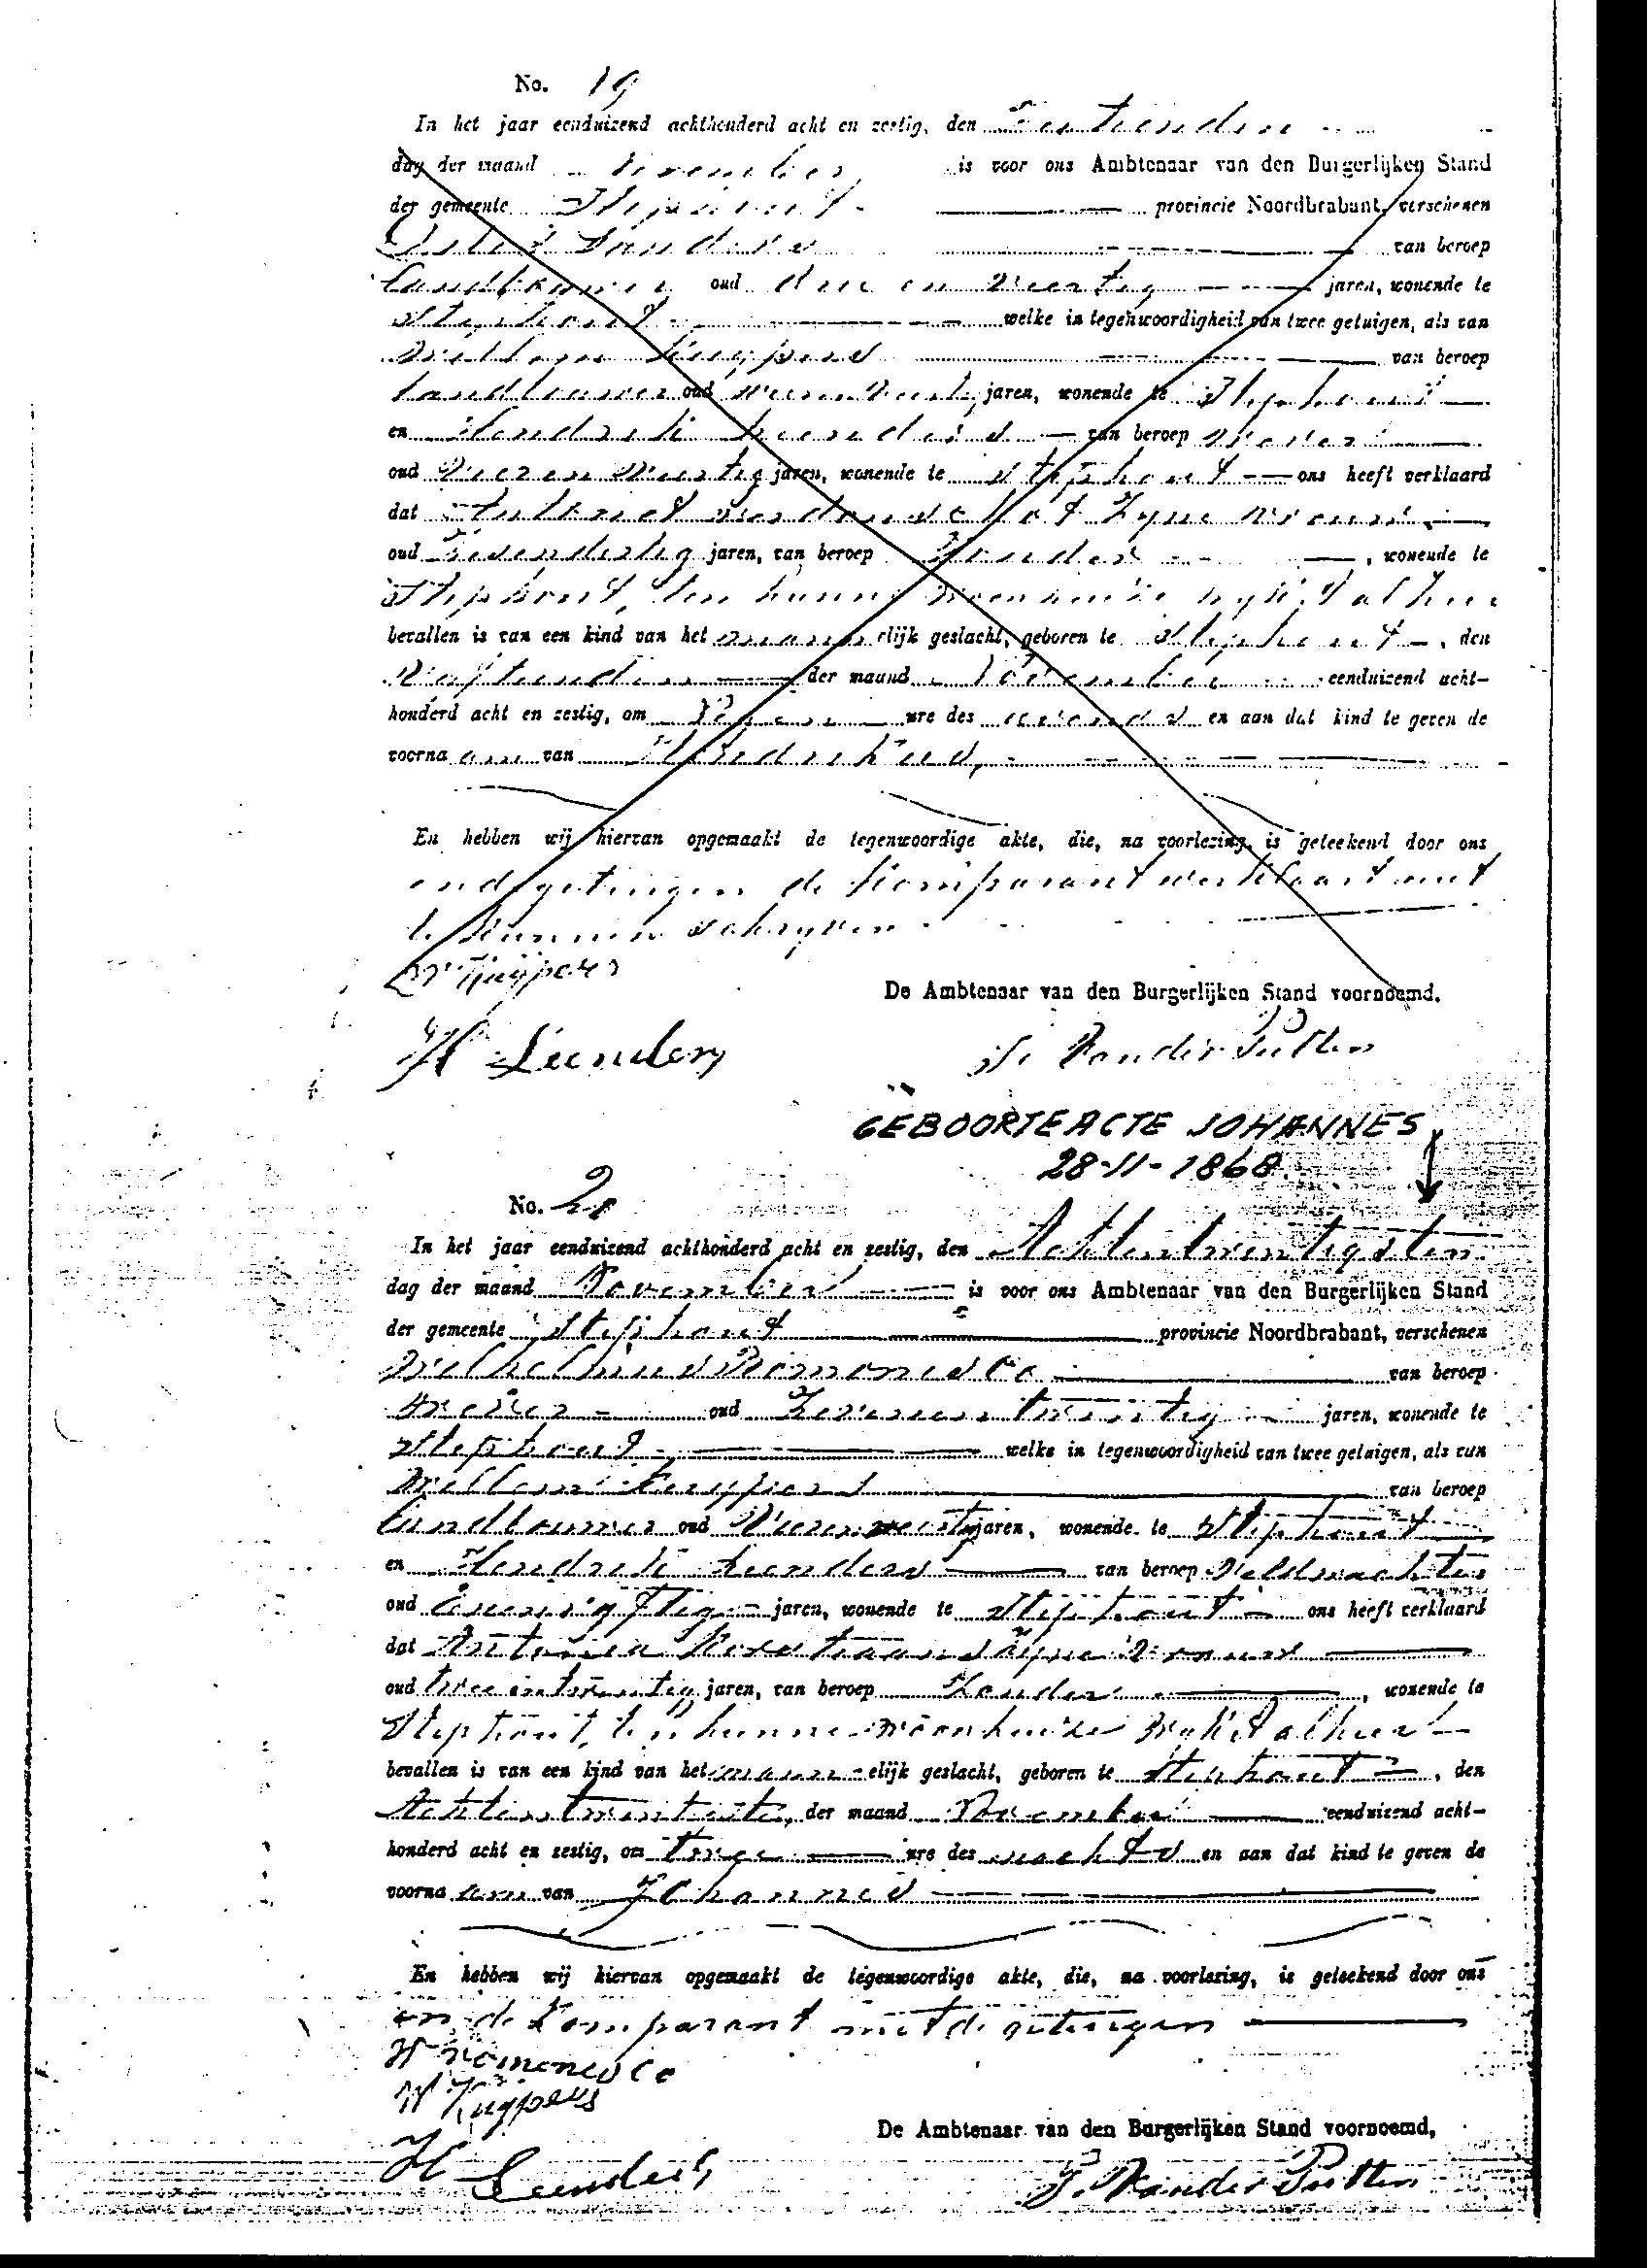 No. 19
In het jaar eenduizend achthonderd acht en zestig, den Zestienden
dag der maand November is voor ons Ambtenaar van den Burgerlijken Stand
der gemeente Stiphout provincie Noordbrabant, verschenen
van beroep
landbouwer oud drie en veertig jaren, wonende te
Stiphout welke in tegenwoordigheid van twee getuigen, als van
Willem Kuypers van beroep
landbouwer oud jaren, wonende te Stiphout
en Hendrik Leenders van beroep
oud jaren, wonende te Stiphout ons heeft verklaard
dat zyne vrouw
oud Zevendertig jaren, van beroep Zonder, wonende te
Stiphout, ten hunne woonhuize wyk alhier
bevallen is van een kind van het mannelijk geslacht, geboren te Stiphout, den
Vyftienden der maand November eenduizend acht-
honderd acht en zestig, om ure des avonds en aan dat kind te geven de
voornaam van
En hebben wij hiervan opgemaakt de tegenwoordige akte, die, na voorlezing, is geteekend door ons
end getuigen de Komparant verklaart niet
te kunnen schryven
W Kuypers
De Ambtenaar van den Burgerlijken Stand voornoemd,
H Leenders
Van der Putten
GEBOORTEACTE JOHANNES
28-11-1868
No. 20
In het jaar eenduizend achthonderd acht en zestig, den Achtentwintigsten
dag der maand November is voor ons Ambtenaar van den Burgerlijken Stand
der gemeente Stiphout provincie Noordbrabant, verschenen
Wilhelmus van beroep
Wever oud Zevenentwintig jaren, wonende te
Stiphout welke in tegenwoordigheid van twee getuigen, als van
Willem Kuypers van beroep
landbouwer oud jaren, wonende te Stiphout
en Hendrik Leenders van beroep Veldwachter
oud jaren, wonende te Stiphout ons heeft verklaard
dat Antonia zyne vrouw
oud twee entwintig jaren, van beroep Zonder, wonende te
Stiphout, ten hunne woonhuize wyk A alhier
bevallen is van een kind van het mannelijk geslacht, geboren te Stiphout, den
Achtentwintigste, der maand November eenduizend acht-
honderd acht en zestig, om twee ure des nachts en aan dat kind te geven de
voornaam van Johannes
En hebben wij hiervan opgemaakt de tegenwoordige akte, die, na voorlezing, is geteekend door ons
en de Komparant met de getuigen
W Kuypers
De Ambtenaar van den Burgerlijken Stand voornoemd,
H Leenders
Van der Putten